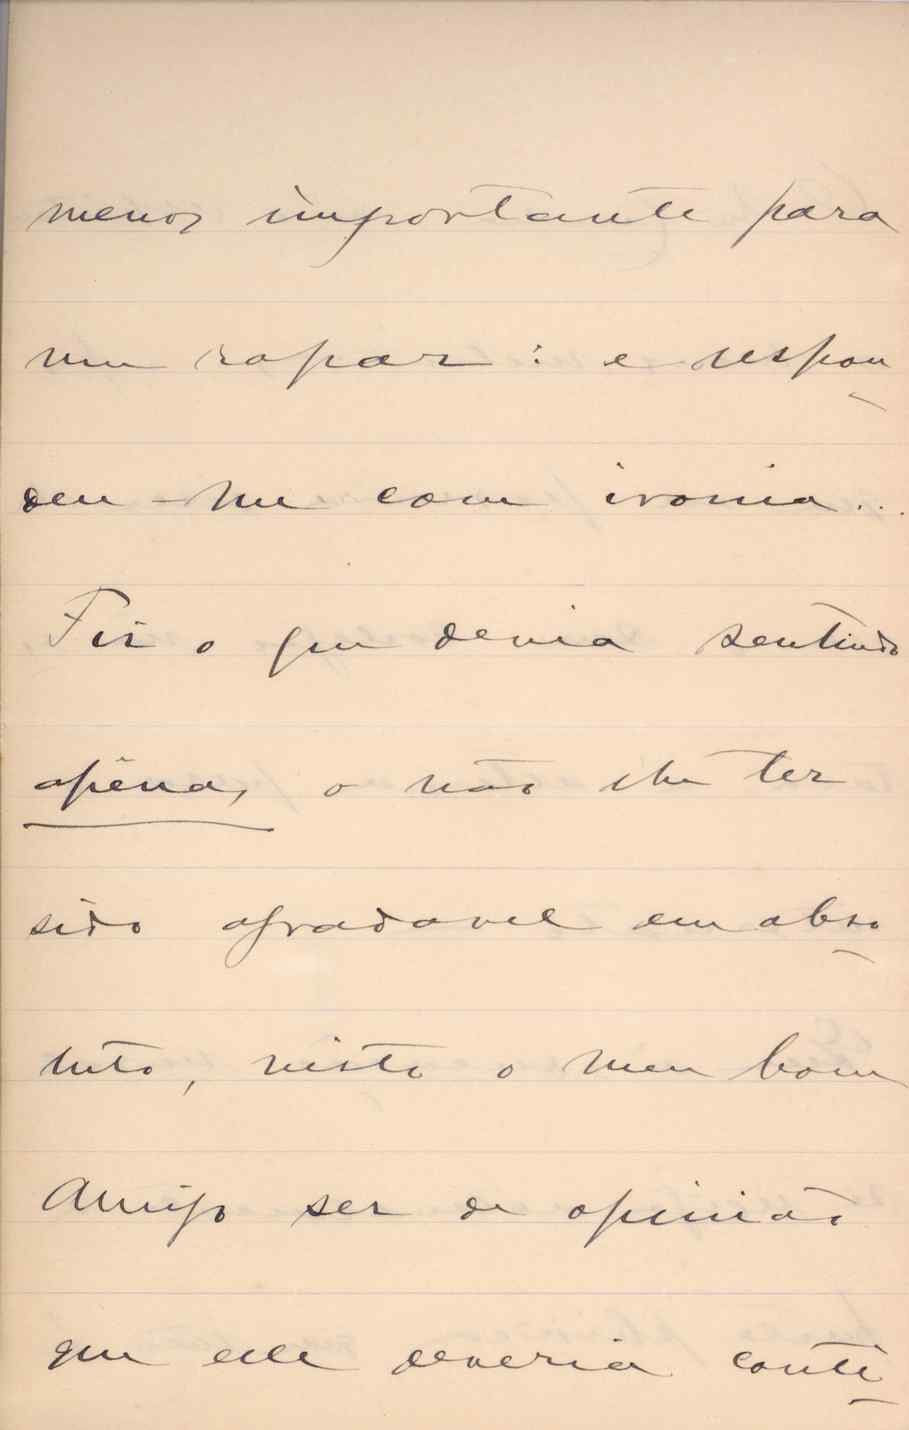 menos importante para
um rapaz: e respon
deu-me com ironia...
Fiz o que devia sentindo
apênas o não lhe ter
sido agradavel em abso
luto, visto o meu bom
Amigo ser de opinião
que elle deveria conti